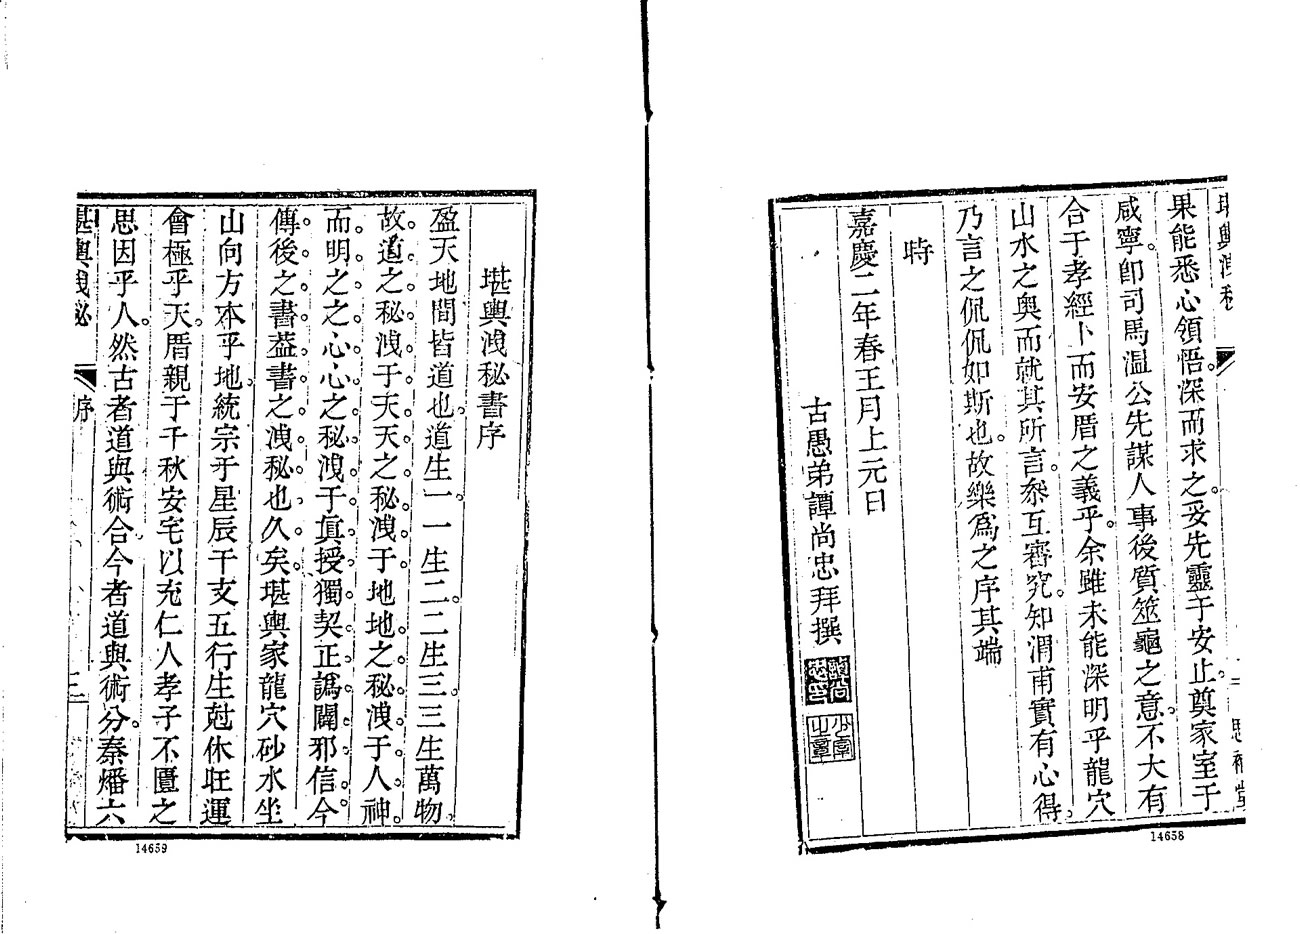 堪輿洩秘
果能悉心領悟。深而求之。妥先靈于安止。奠家室于
咸寧。卽司馬溫公先謀人事後質筮龜之意。不大有
合于孝經卜而安厝之義乎。余雖未能深明乎龍穴
山水之奧。而就其所言。叅互審究。知渭甫實有心得。
乃言之侃侃如斯也。故樂爲之序其端
時
嘉慶二年春王月上元日
古愚弟譚尚忠拜撰
14658
堪輿洩秘書序
盈天地間皆道也。道生一。一生二。二生三。三生萬物。
故道之秘洩于天。天之秘洩于地。地之秘洩于人。神
而明之之心。心之秘洩于眞授。獨契正譌闢邪信今
傳後之書。葢書之洩秘也久矣。堪輿家龍穴砂水坐
山向方本乎地。統宗于星辰干支五行生尅休旺運
會極乎天。厝親于千秋安宅以充仁人孝子不匱之
思因乎人。然古者道與術合。今者道與術分。秦燔六
堪輿洩秘
序
三
14659